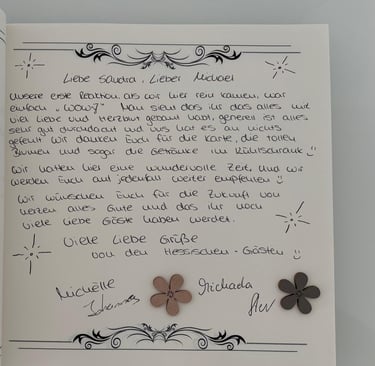 Liebe Sandra, Lieber Michael
Unsere erste Reaktion, als wir hier rein kamen, war
einfach „WOW!" Man sieht das ihr das alles mit
viel Liebe und Herzblut gebaut habt, generell ist alles
sehr gut durchdacht und uns hat es an nichts
gefehlt. Wir danken Euch für die Karte, die tollen
Blumen und sogar die Getränke im Kühlschrank
Wir hatten hier eine wundervolle Zeit, und wir
werden Euch auf jedenfall weiter empfehlen
Wir wünschen Euch für die Zukunft von
Herzen alles Gute und das ihr noch
viele liebe Gäste haben werdet.
Viele Liebe Grüße
von den Hessischen-Gästen
Michèlle
Johannes
Michaela